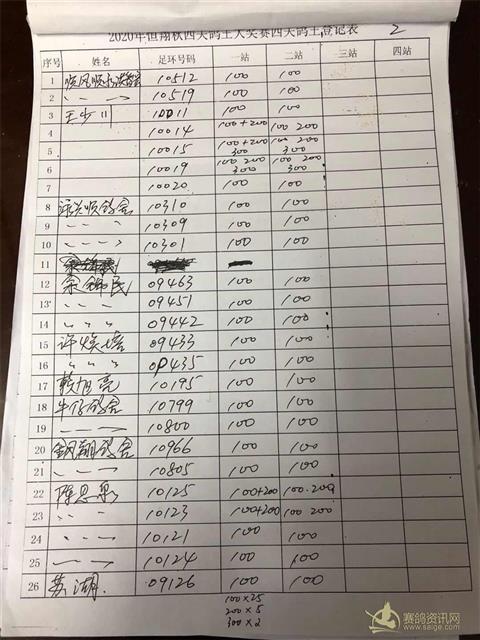 2020年恒翔秋四关鸽王大奖赛四关鸽王登记表 2
序号 姓名 足环号码 一站 二站 三站 四站
1 10512 100 100
2 〃 〃 10519 100 100
3 王少川 10011 100 100
4 10014 100+200 100 200
5 10015 100+200 300 100 200 300
6 10019 100 200 300 100 200 300
7 10020 100 100
8 10310 100 100
9 〃 〃 〃 10309 100 100
10 〃 〃 〃 10301 100 100
11
12 余锦民 09463 100 100
13 〃 〃 〃 09451 100 100
14 〃 〃 〃 09442 100 100
15 许焕培 09433 100 100
16 〃 〃 〃 09435 100 100
17 赖旭亮 10195 100 100
18 牛仔鸽舍 10799 100 100
19 〃 〃 10800 100 100
20 翔鸽舍 10966 100 100
21 〃 〃 10805 100 100
22 陈思 10125 100+200 100.200
23 〃 〃 10123 100+200 100 200
24 10121 100 100
25 〃 〃 10124 100 100
26 苏湖. 09126 100 100
100×25
200×5
300×2
赛鸽资讯网
www.saige.com